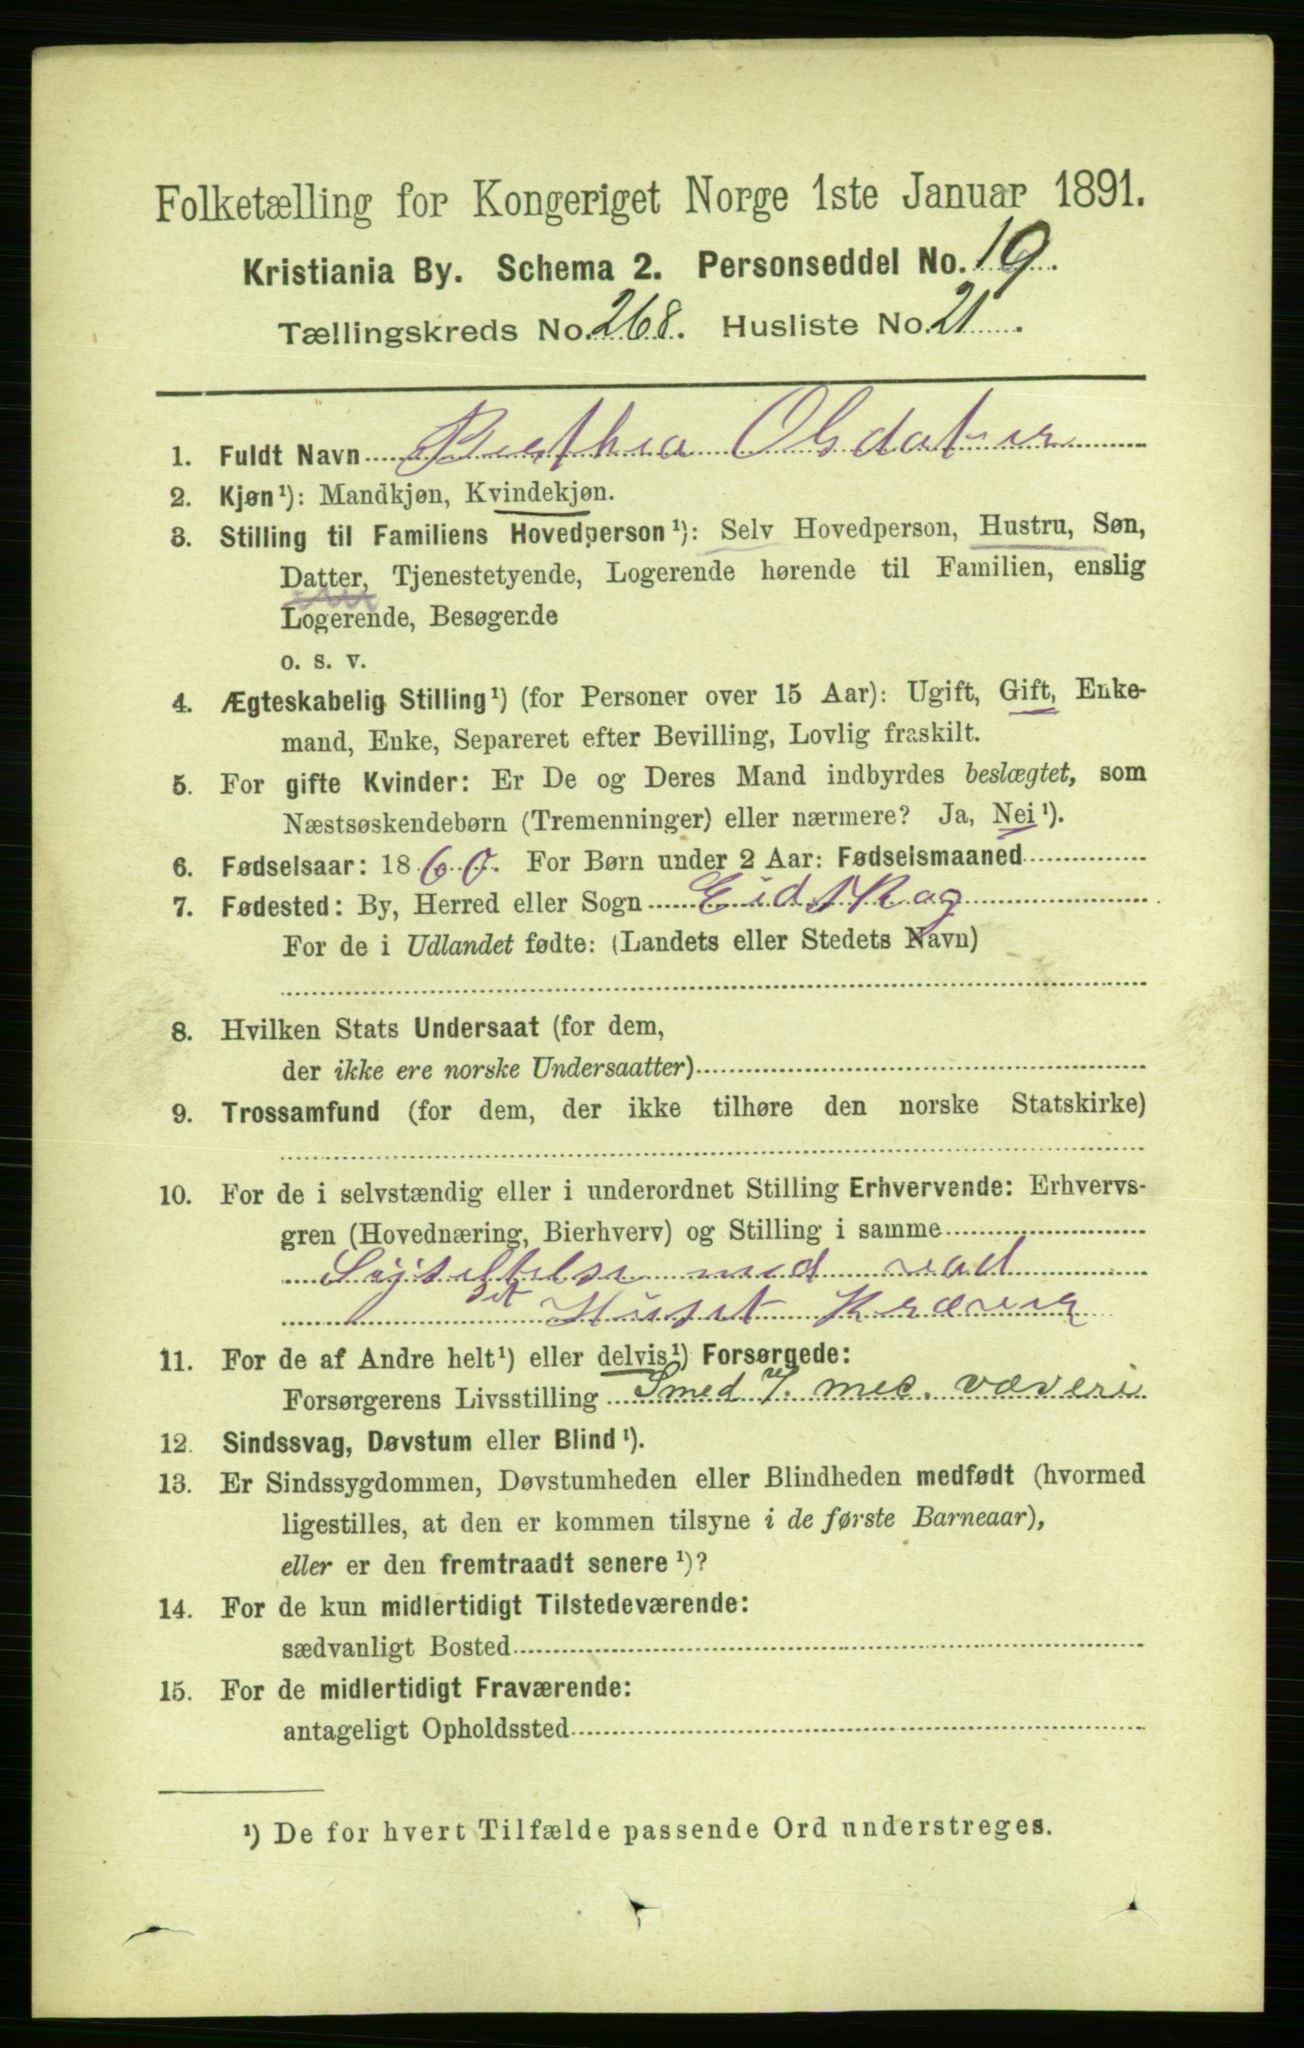 Folketælling for Kongeriget Norge 1ste Januar 1891.
Kristiania By. Schema 2. Personseddel No. 19.
Tællingskreds No. 268. Husliste No. 21.
1. Fuldt Navn Berthea Olsdatter
2. Kjøn¹): Mandkjøn, Kvindekjøn.
3. Stilling til Familiens Hovedperson¹): Selv Hovedperson, Hustru, Søn,
Datter, Tjenestetyende, Logerende hørende til Familien, enslig
Logerende, Besøgende
o. s. v.
4. Ægteskabelig Stilling¹) (for Personer over 15 Aar): Ugift, Gift, Enke-
mand, Enke, Separeret efter Bevilling, Lovlig fraskilt.
5. For gifte Kvinder: Er De og Deres Mand indbyrdes beslægtet, som
Næstsøskendebørn (Tremenninger) eller nærmere? Ja, Nei¹).
6. Fødselsaar: 1860. For Børn under 2 Aar: Fødselsmaaned
7. Fødested: By, Herred eller Sogn Eidskog
For de i Udlandet fødte: (Landets eller Stedets Navn)
8. Hvilken Stats Undersaat (for dem,
der ikke ere norske Undersaatter)
9. Trossamfund (for dem, der ikke tilhøre den norske Statskirke)
10. For de i selvstændig eller i underordnet Stilling Erhvervende: Erhvervs-
gren (Hovednæring, Bierhverv) og Stilling i samme
med vad
Huset Kræver
11. For de af Andre helt¹) eller delvis¹) Forsørgede:
Forsørgerens Livsstilling Smed v. mec. væveri
12. Sindssvag, Døvstum eller Blind¹).
13. Er Sindssygdommen, Døvstumheden eller Blindheden medfødt (hvormed
ligestilles, at den er kommen tilsyne i de første Barneaar),
eller er den fremtraadt senere¹)?
14. For de kun midlertidigt Tilstedeværende:
sædvanligt Bosted
15. For de midlertidigt Fraværende:
antageligt Opholdssted
¹) De for hvert Tilfælde passende Ord understreges.